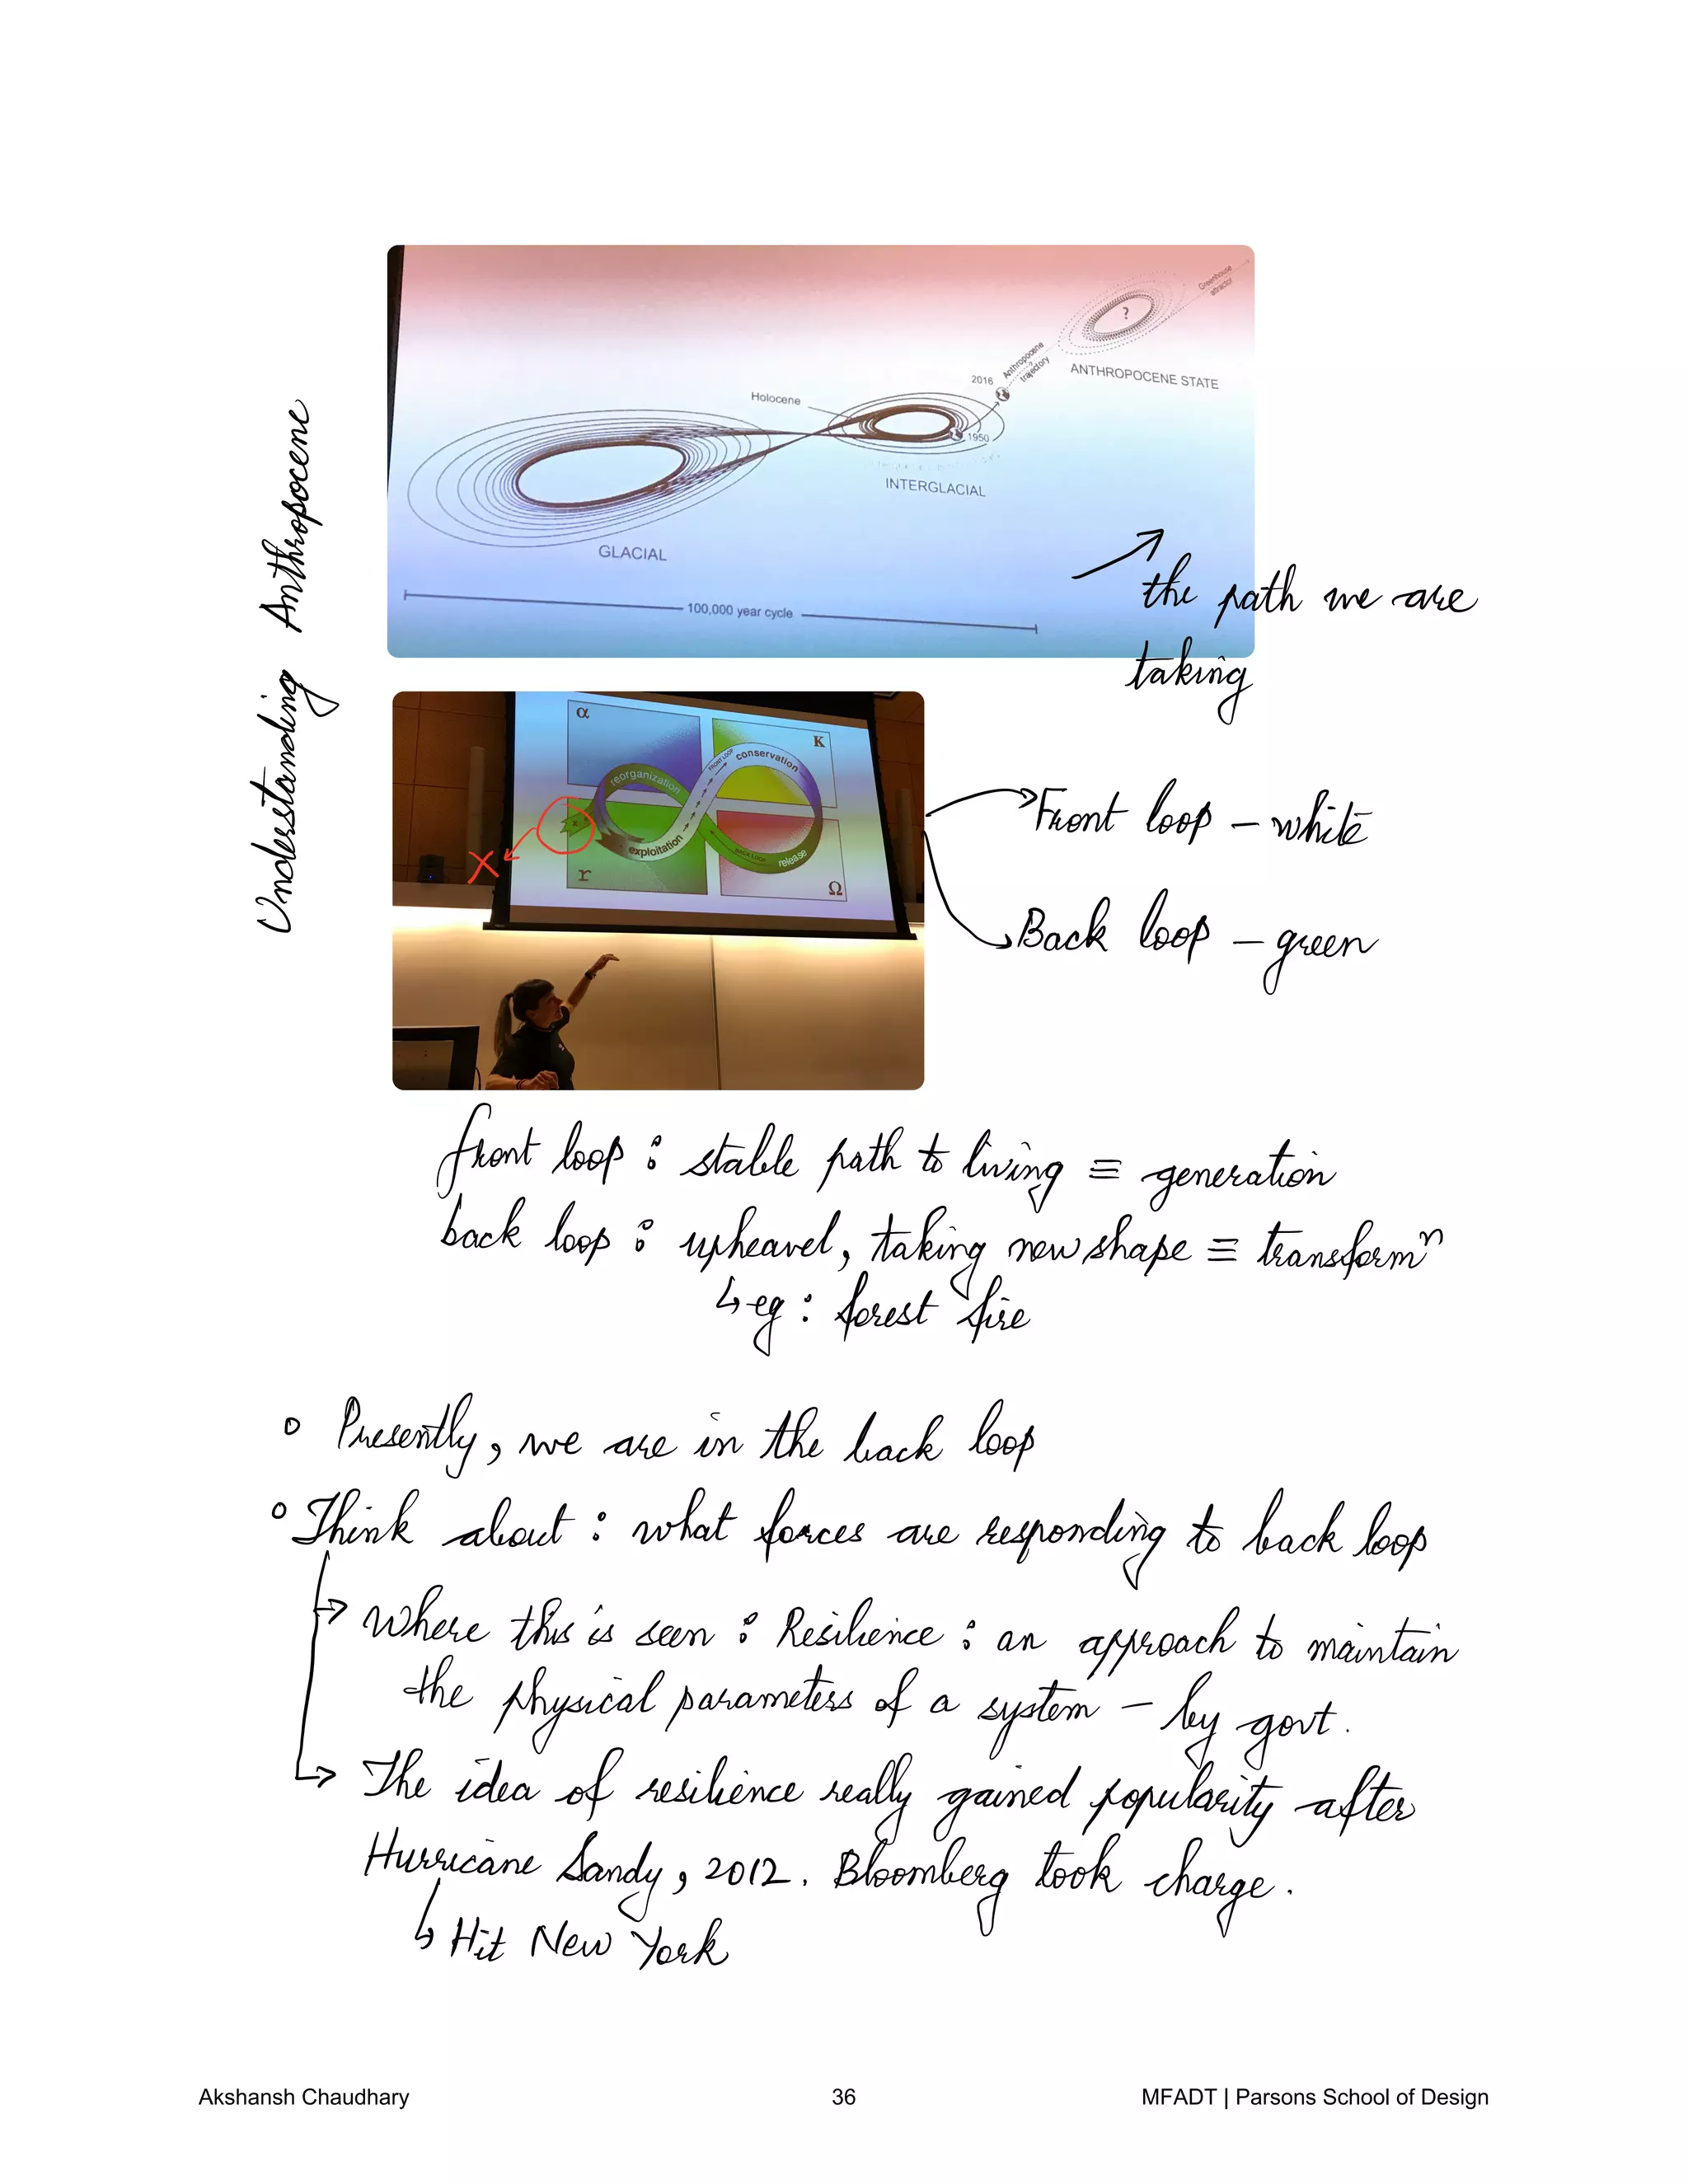 Understanding Anthropocene
Greenhouse
attractor
?
ANTHROPOCENE STATE
Anthropocene
trajectory
2016
Holocene
1950
INTERGLACIAL
GLACIAL
100,000 year cycle
the path we are
taking
α
K
FRONT LOOP
conservation
reorganization
x
X
exploitation
BACK LOOP
release
r
Ω
Front loop - white
Back loop - green
front loop : stable path to living ≡ generation
back loop : upheavel, taking new shape ≡ transformⁿ
↳ eg : forest fire
° Presently, we are in the back loop
° Think about : what forces are responding to back loop
→ where this is seen : Resilience : an approach to maintain
the physical parameters of a system - by govt.
→ The idea of resilience really gained popularity after
Hurricane Sandy, 2012. Bloomberg took charge.
↳ Hit New York
Akshansh Chaudhary
36
MFADT | Parsons School of Design